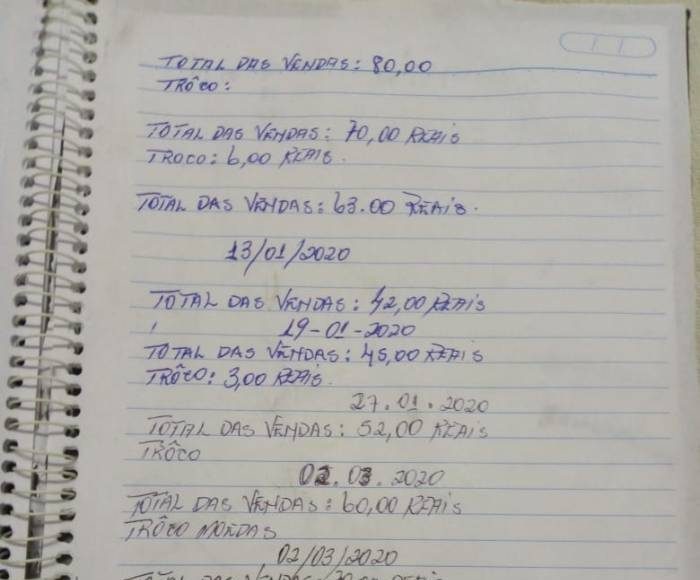 TOTAL DAS VENDAS: 80,00
TRÔCO:
TOTAL DAS VENDAS: 70,00 REAIS
TROCO: 6,00 REAIS.
TOTAL DAS VENDAS: 63.00 REAIS.
13/01/2020
TOTAL DAS VENDAS: 42,00 REAIS
19-01-2020
TOTAL DAS VENDAS: 45,00 REAIS
TRÔCO: 3,00 REAIS.
27.01.2020
TOTAL DAS VENDAS: 52,00 REAIS
TRÔCO
02.03.2020
TOTAL DAS VENDAS: 60,00 REAIS
TRÔCO MOEDAS
02/03/2020
TOTAL DAS VENDAS